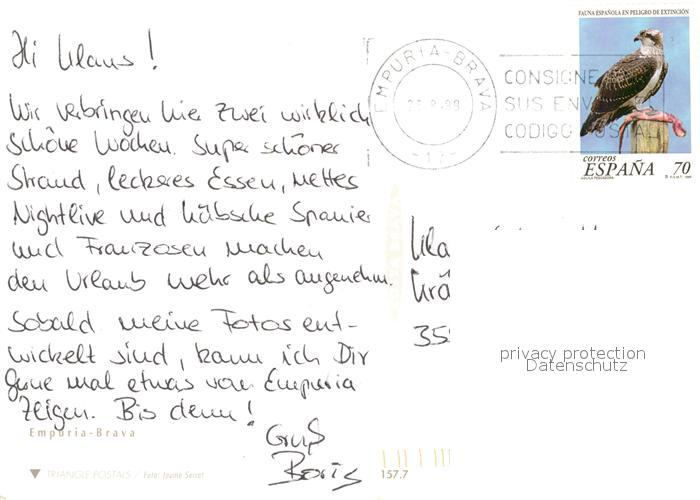 Hi Klaus!
Wir verbringen hier zwei wirklich
schöne Wochen. Super schöner
Strand, leckeres Essen, nettes
Nightlive und hübsche Spanier
und Franzosen machen
den Urlaub mehr als angenehm.
Sobald meine Fotos ent-
wickelt sind, kann ich Dir
gerne mal etwas von Empuria
zeigen. Bis denn!
Gruß
Boris
Empuria-Brava
TRIANGLE POSTALS / Foto: Jaume Serrat
157.7
EMPURIA-BRAVA
CONSIGNE
SUS ENV
CODIGO POSTAL
FAUNA ESPAÑOLA EN PELIGRO DE EXTINCIÓN
correos
ESPAÑA 70
AGUILA PESCADORA
Kla
35
privacy protection
Datenschutz